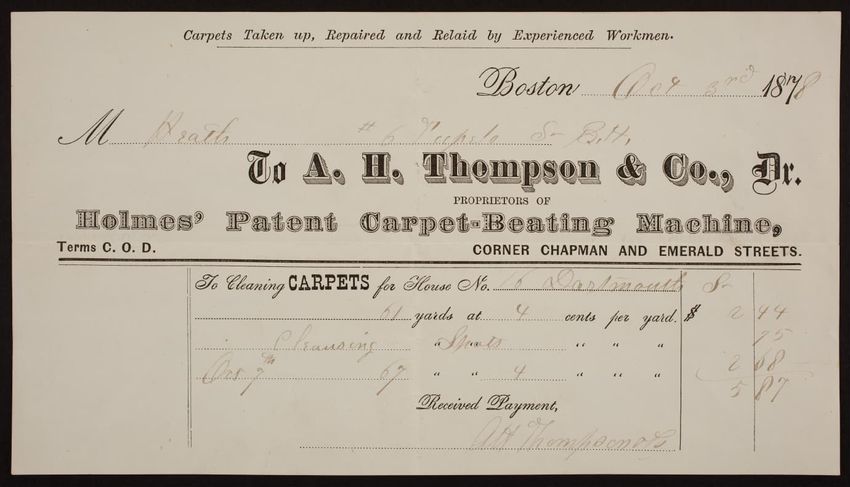 Carpets Taken up, Repaired and Relaid by Experienced Workmen.
Boston Oct 3rd 1878
M Heath # 6 Tupelo St B.H.
To A. H. Thompson & Co., Dr.
PROPRIETORS OF
Holmes' Patent Carpet-Beating Machine,
Terms C. O. D. CORNER CHAPMAN AND EMERALD STREETS.
To Cleaning CARPETS for House No. 16 Dartmouth St
61 yards at 4 cents per yard. $ 2 44
Cleansing " " " " " 75
Oct 7th 67 " " 4 " " " 2 68
5 87
Received Payment,
A H Thompson & Co